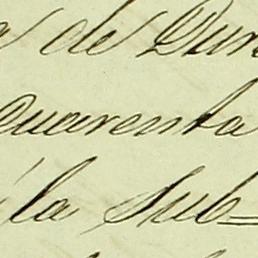 de Dur
Quarenta
á la Sub=